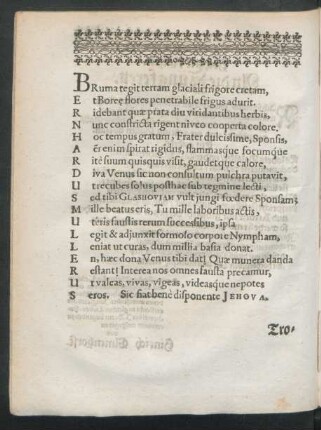 Bruma tegit terram glaciali frigore cretam,
Et Boreę flores penetrabile frigus adurit.
Ridebant quæ prata diu viridantibus herbis,
Nunc constricta rigent niveo cooperta colore.
Hoc tempus gratum, Frater dulcissime, Sponsis,
Aër enim spirat rigidus, flammasque focumque
Ritè suum quisquis visit, gaudetque calore,
Diva Venus sic non consultum pulchra putavit,
Ut recubes solus posthac sub tegmine lecti,
Sed tibi GLASHOVIAM vult jungi fœdere Sponsam;
Mille beatus eris, Tu mille laboribus actis,
Uteris faustis rerum successibus, ipsa
Legit & adjunxit formoso corpore Nympham,
Leniat ut curas, dum millia basia donat.
En, hæc dona Venus tibi dat; Quæ munera danda
Restant; Interea nos omnes fausta precamur,
Ut valeas, vivas, vigeas, videasque nepotes
Seros. Sic fiat benè disponente JEHOVA.
Tro-